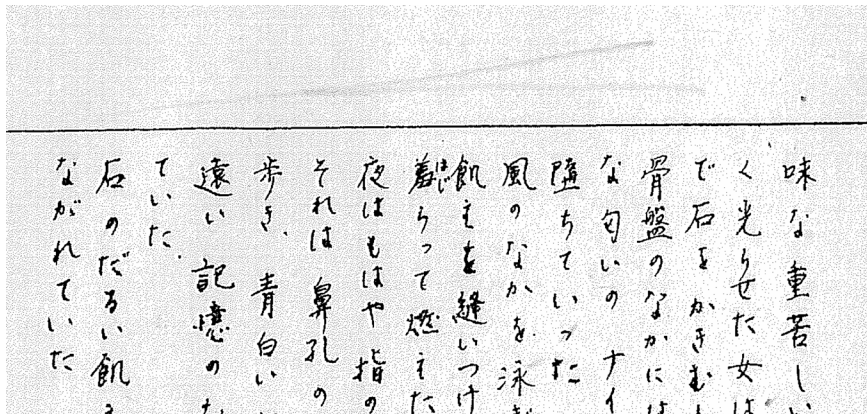 味な重苦しい
く光らせた女は
で石をかきむし
骨盤のなかには
な匂いの ナイ
堕ちていった
風のなかを泳ぎ
飢えを縫いつけ
羞らって燃えた
夜はもはや指の
それは 鼻孔の
歩き、青白い
遠い 記憶の
ていた。
石のだるい飢え
ながれていた